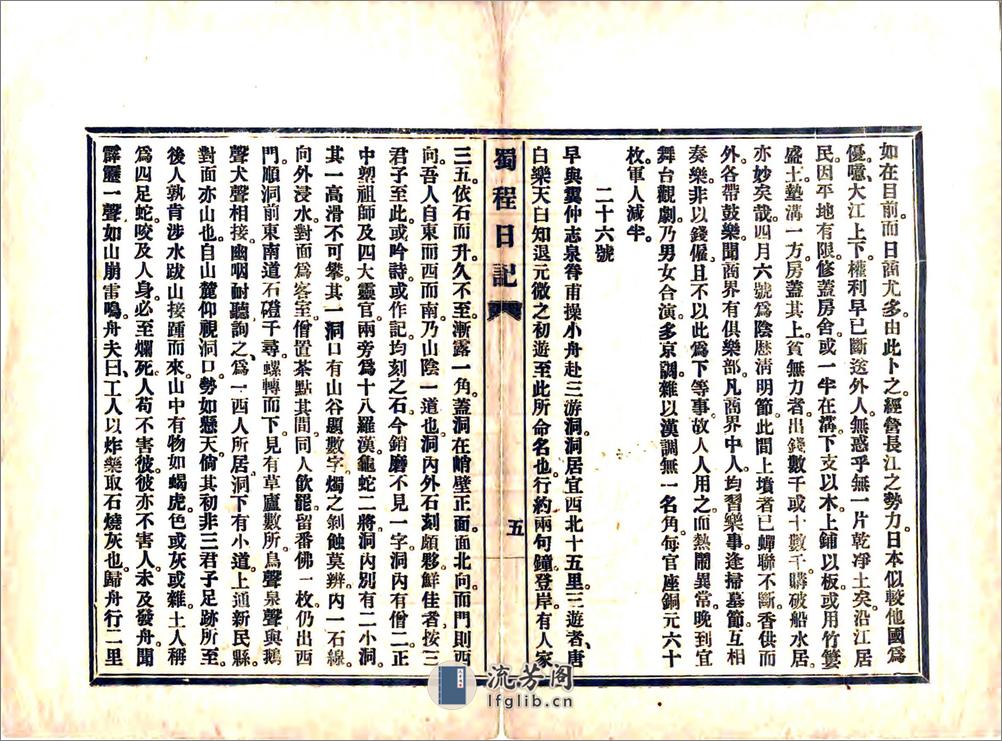 如在目前而日商尤多由此卜之經營長江之勢力日本似較他國爲
優噫大江上下權利早已斷送外人無惑乎無一片乾凈土矣沿江居
民因平地有限修蓋房舍或一半在溝下支以木上鋪以板或用竹簍
盛土墊溝一方房蓋其上貧無力者出錢數千或十數千購破船水居
亦妙矣哉四月六號爲陰歷清明節此間上墳者已蟬聯不斷香供而
外各帶鼓樂聞商界有俱樂部凡商界中人均習樂事逢掃墓節互相
奏樂非以錢僱且不以此爲下等事故人人用之而熱鬧異常晚到宜
舞台觀劇乃男女合演多京調雜以漢調無一名角每官座銅元六十
枚軍人減半
二十六號
早與翼仲志泉眷甫操小舟赴三游洞洞居宜西北十五里三遊者唐
白樂天白知退元微之初遊至此所命名也行約兩句鐘登岸有人家
蜀程日記
五
三五依石而升久不至漸露一角蓋洞在峭壁正面面北向而門則西
向吾人自東而西而南乃山陰一道也洞內外石刻頗夥鮮佳者按三
君子至此或吟詩或作記均刻之石今銷磨不見一字洞內有僧二正
中塑祖師及四大靈官兩旁爲十八羅漢龜蛇二將洞內別有二小洞
其一高滑不可攀其一洞口有山谷題數字燭之剝蝕莫辨內一石線
向外浸水對面爲客室僧置茶點其間同人飲罷留番佛一枚仍出西
門順洞前東南道石磴千尋螺轉而下見有草廬數所鳥聲泉聲與鵝
聲犬聲相接幽咽耐聽詢之爲一西人所居洞下有小道上通新民縣
對面亦山也自山麓仰視洞口勢如懸天倘其初非三君子足跡所至
後人孰肯涉水跋山接踵而來山中有物如蝎虎色或灰或雜土人稱
爲四足蛇咬及人身必至爛死人苟不害彼彼亦不害人未及發舟聞
霹靂一聲如山崩雷鳴舟夫曰工人以炸藥取石燒灰也歸舟行二里
流芳阁
lfglib.cn